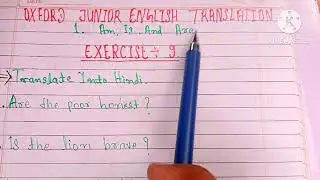 OXFORD JUNIOR ENGLISH TRANSLATION
1. Am, Is And Are
EXERCISE ÷ 9
→ Translate Into Hindi.
Are the poor honest?
Is the lion brave?